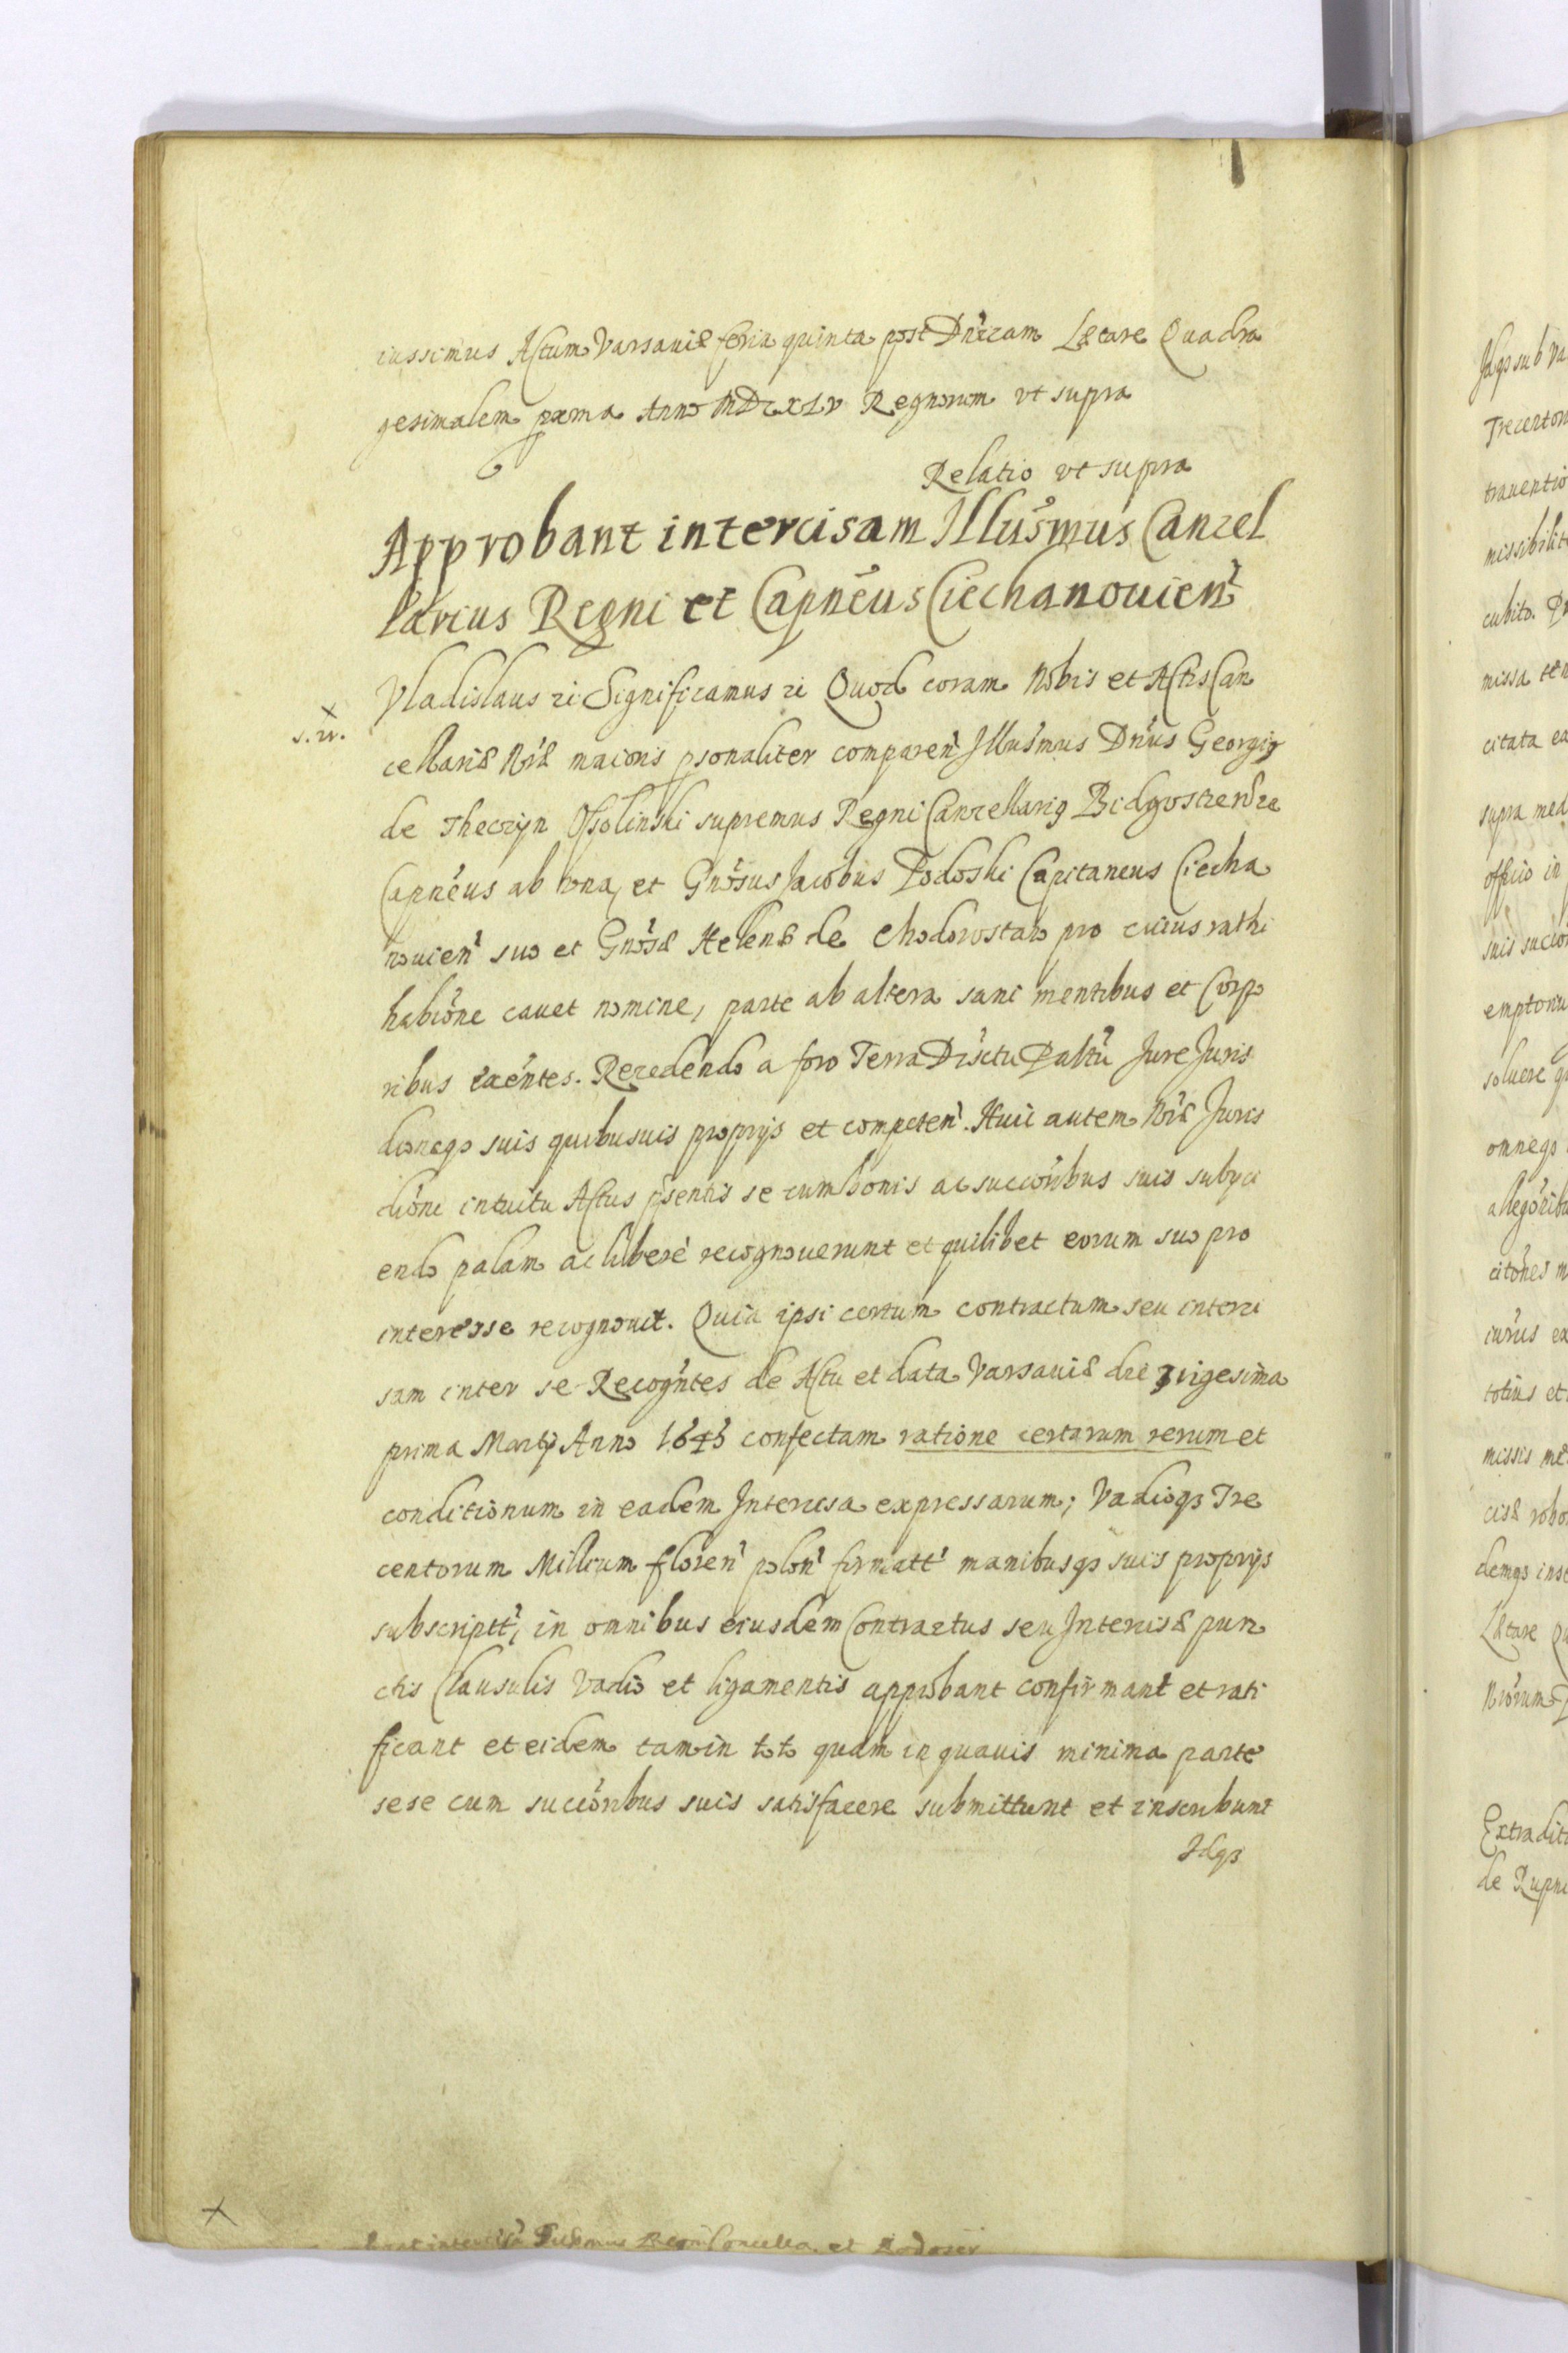 iussimus Actum Varsaviæ feria quinta post Dnicam Lætare Quadra
gesimalem pxma Anno MDcXLV Regnorum vt supra
Relatio vt supra
Approbant intercisam Illusmus Cancel
larius Regni et Capneus Ciechanouien
Vladislaus zc Significamus zc Quod coram Nobis et Actis Can
s. w.
cellariæ Nræ maioris psonaliter comparen Illusmus Dnus Georgius
de Theczyn Ossolinski supremus Regni Cancellarius Bidgostien zc
Capneus ab vna, et Gnosus Jacobus Podoski Capitaneus Ciecha
nouien suo et Gnosæ Helenæ de Chodorostaw pro cuius rathi
habione cauet nomine, parte ab altera sani mentibus et Corpo
ribus exentes. Recedendo a foro Terra Districtu Paltu Jure Juris
dioneqз suis quibusuis proprijs et competen. Huic autem Nræ Juris
dioni intuitu Actus psentis se cum bonis ac succoribus suis subyci
endo palam ac liberè recognouerunt et quilibet eorum suo pro
interesse recognouit. Quia ipsi certum contractum seu interci
sam inter se Recognтes de Actu et data Varsaviæ die vigesima
prima Martij Anno 1645 confectam ratione certarum rerum et
conditionum in eadem Intercisa expressarum; Vadioqз Tre
centorum Millium floren polon firmatt manibusqз suis proprijs
subscriptt, in omnibus eiusdem Contractus seu Intercisæ pun
ctis Clausulis Vadio et ligamentis approbant confirmant et rati
ficant et eidem tam in toto quam in quauis minima parte
sese cum succoribus suis satisfacere submittunt et inscribunt
Idqз